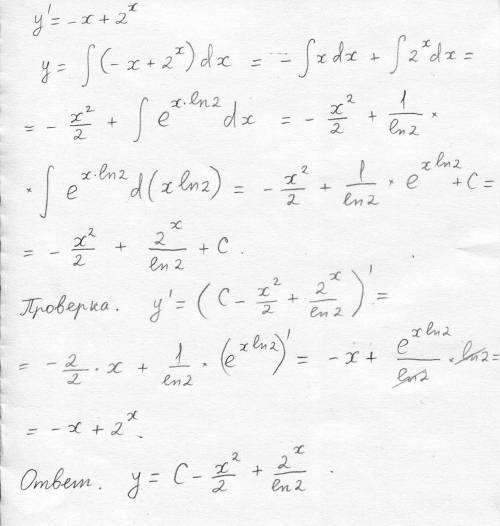 y' = -x + 2^x
y = ∫(-x + 2^x) dx = -∫x dx + ∫2^x dx =
= - x²/2 + ∫ e^(x·ln2) dx = - x²/2 + 1/ln2 *
* ∫ e^(x·ln2) d(x ln2) = - x²/2 + 1/ln2 · e^(x ln2) + C =
= - x²/2 + 2^x/ln2 + C.
Проверка. y' = (C - x²/2 + 2^x/ln2)' =
= - 2/2 · x + 1/ln2 · (e^(x ln2))' = -x + e^(x ln2)/ln2 · ln2 =
= -x + 2^x.
Ответ. y = C - x²/2 + 2^x/ln2.